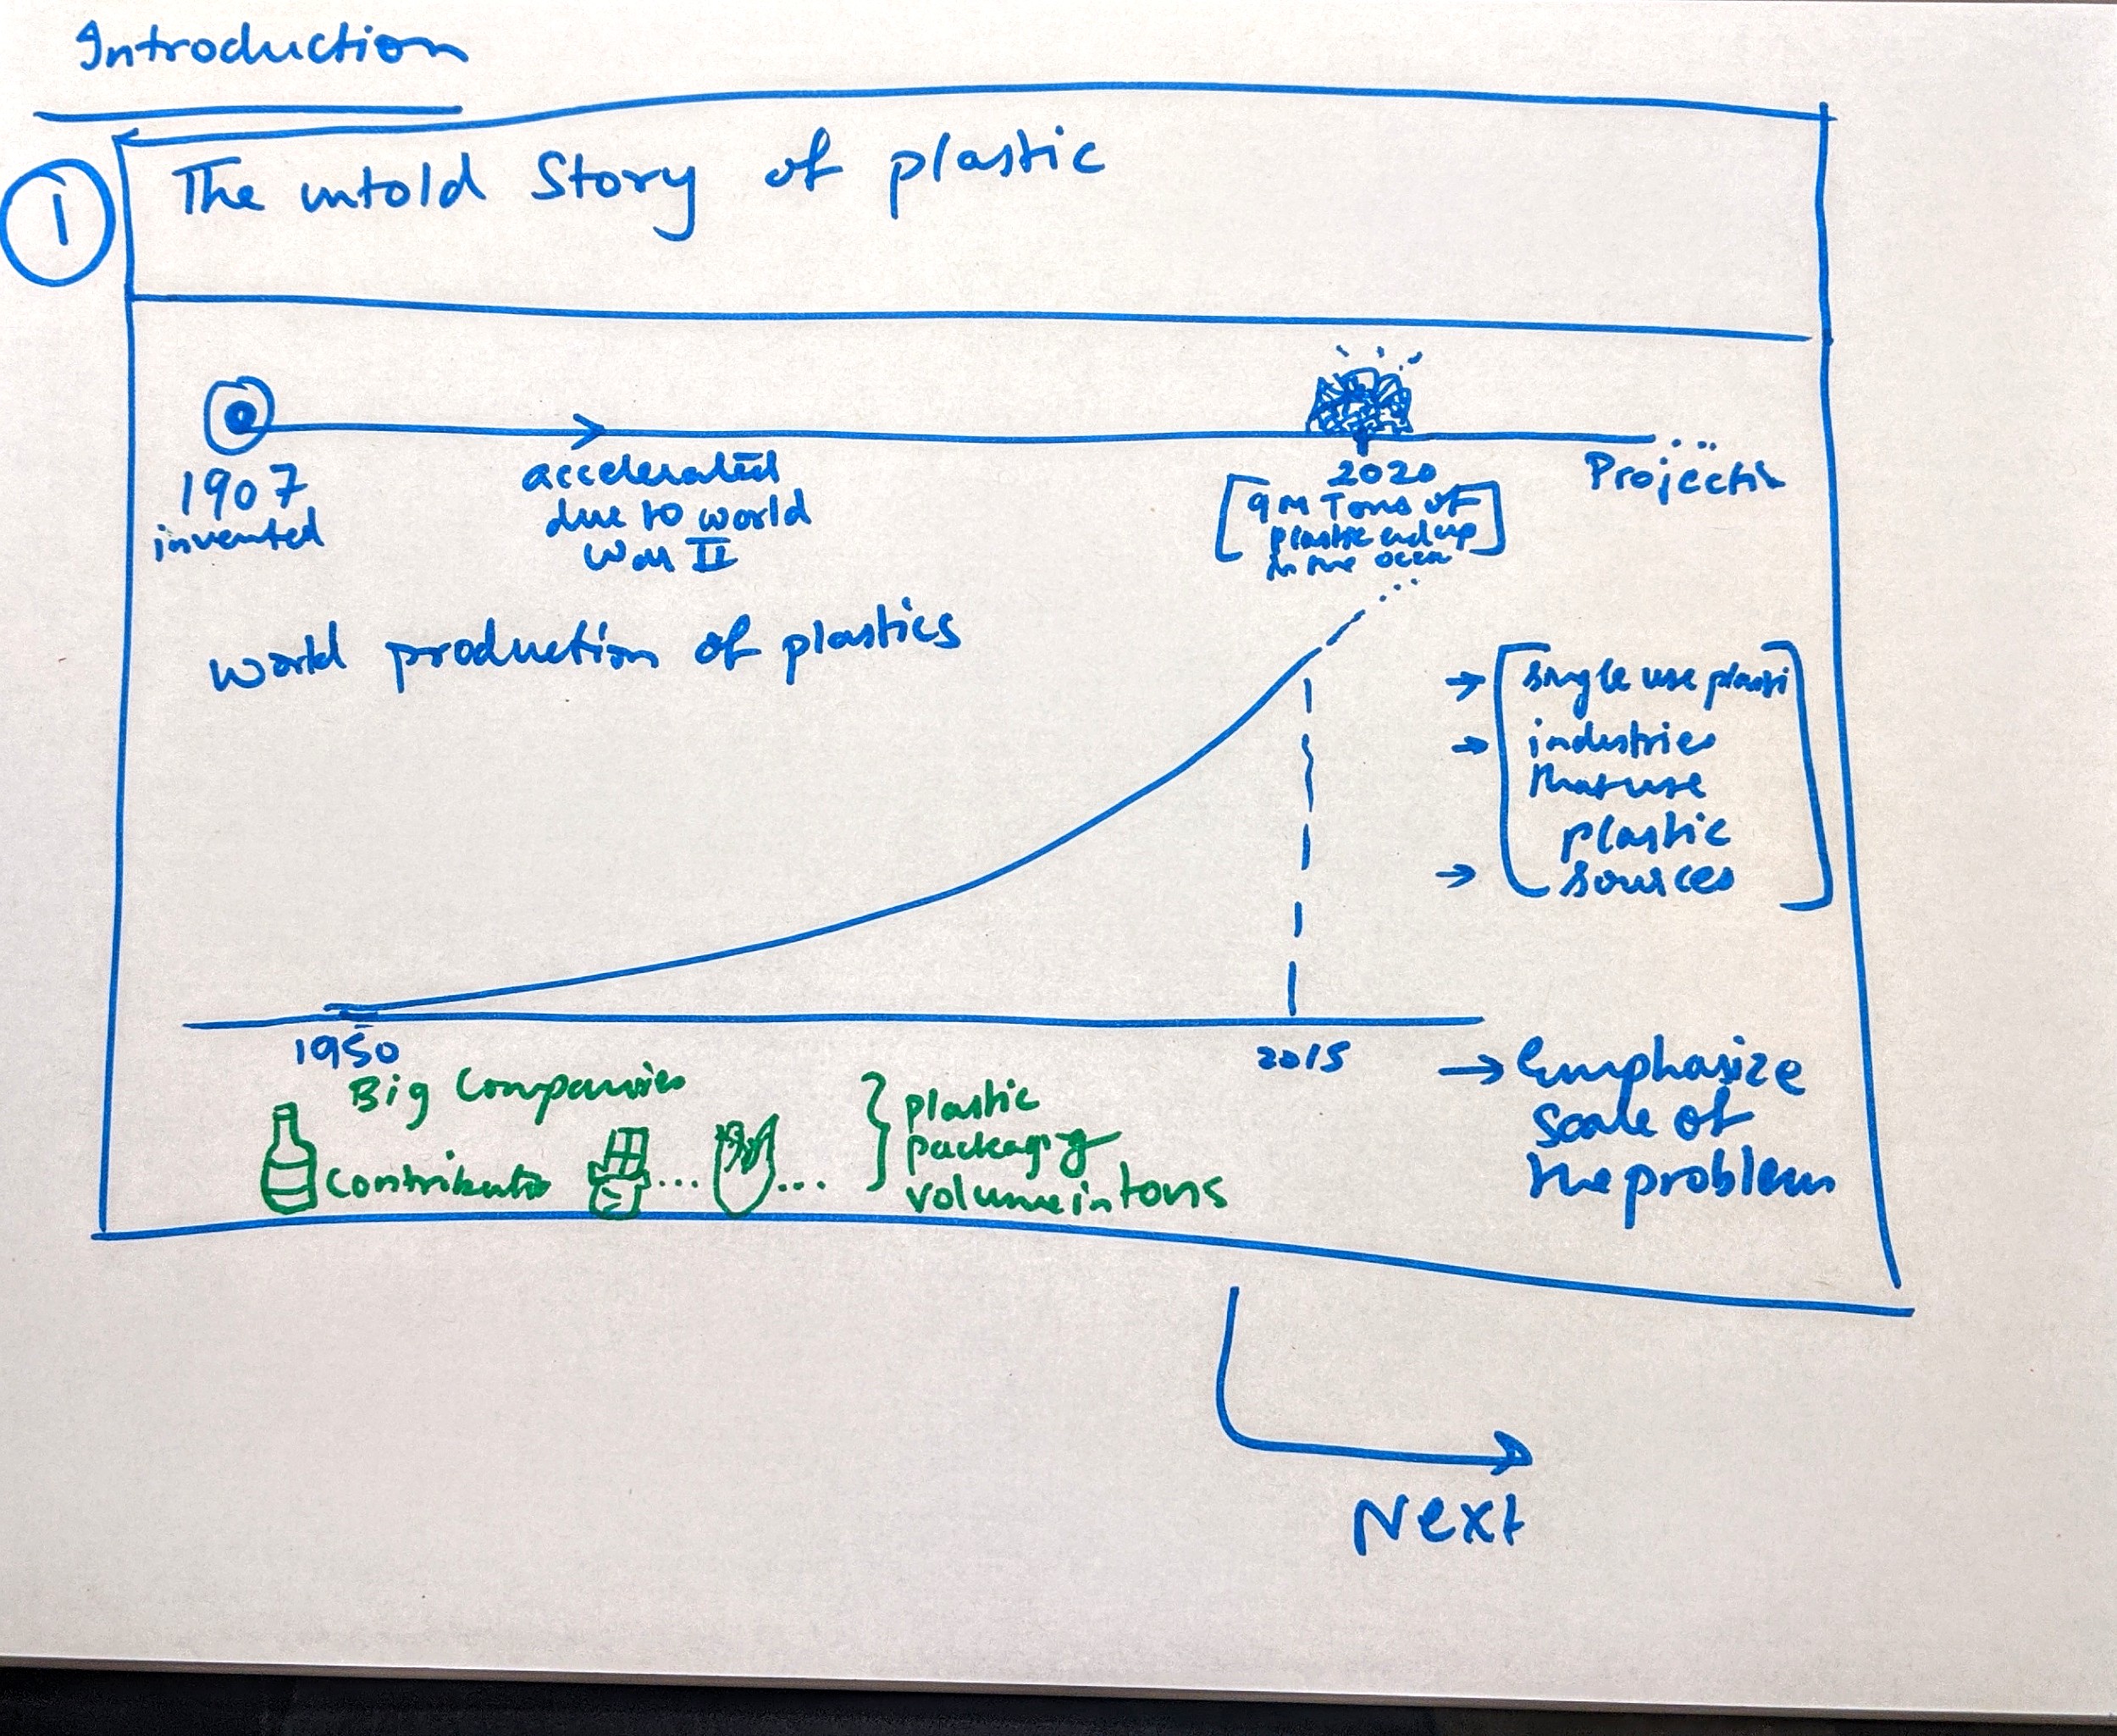 Introduction
1
The untold Story of plastic
1907
invented
accelerated
due to world
War II
2020
9M Tons of
plastic end up
in the ocean
Projectin
world production of plastics
single use plasti
industries
that use
plastic
sources
1950
2015
Emphasize
scale of
the problem
Big Companies
Contributio
plastic
packaging
volume in tons
Next